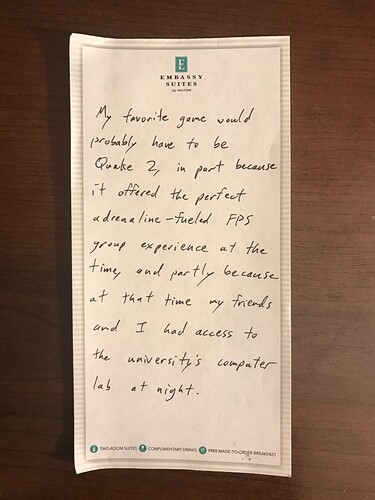 E
EMBASSY
SUITES
by HILTON
My favorite game would
probably have to be
Quake 2, in part because
it offered the perfect
adrenaline-fueled FPS
group experience at the
time, and partly because
at that time my friends
and I had access to
the university's computer
lab at night.
TWO-ROOM SUITES COMPLIMENTARY DRINKS FREE MADE-TO-ORDER BREAKFAST